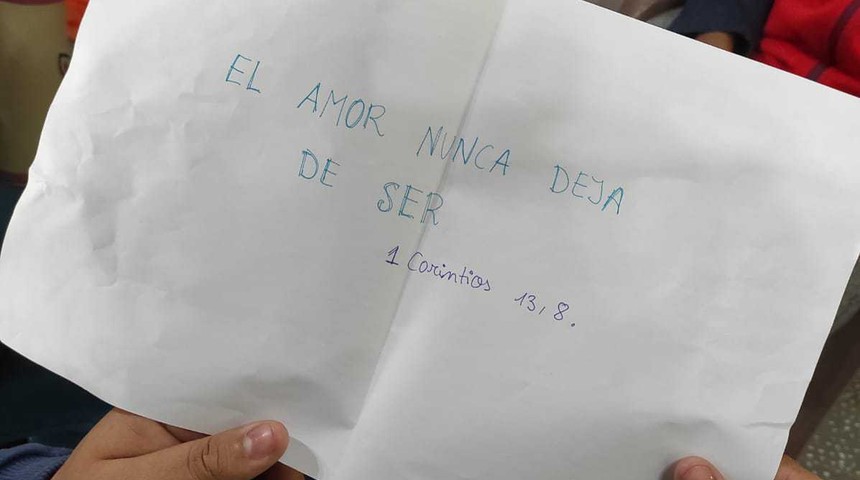 EL AMOR NUNCA DEJA
DE SER
1 Corintios 13, 8.